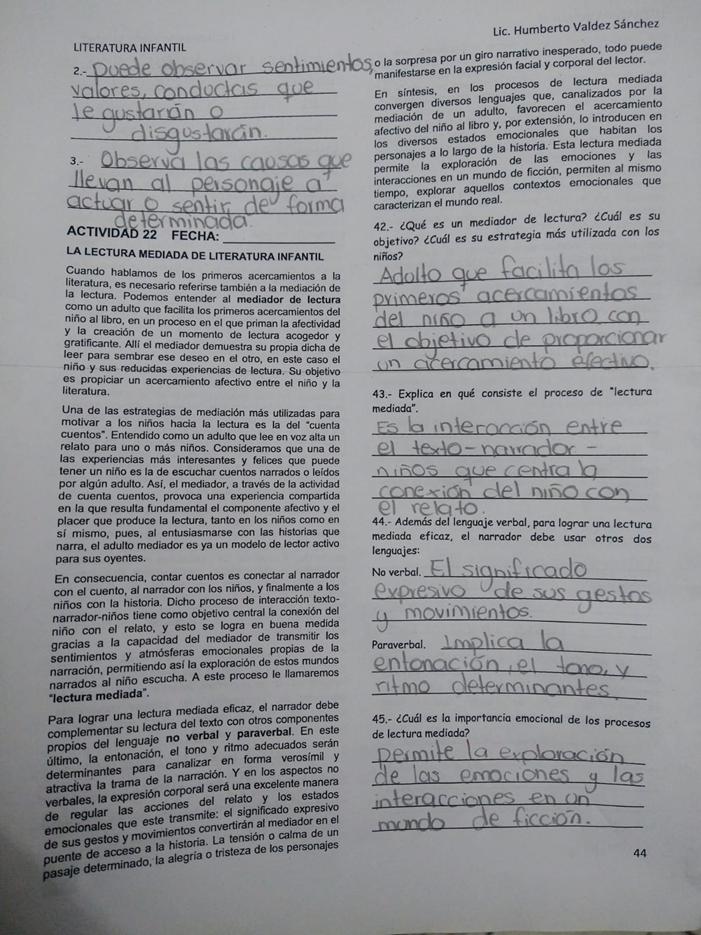 Lic. Humberto Valdez Sánchez
LITERATURA INFANTIL
2.- Puede observar sentimientos,
valores, conductas que
le gustarán o
disgustarán.
3.- Observa las causas que
llevan al personaje a
actuar o sentir de forma
determinada.
ACTIVIDAD 22 FECHA:
LA LECTURA MEDIADA DE LITERATURA INFANTIL
Cuando hablamos de los primeros acercamientos a la
literatura, es necesario referirse también a la mediación de
la lectura. Podemos entender al mediador de lectura
como un adulto que facilita los primeros acercamientos del
niño al libro, en un proceso en el que priman la afectividad
y la creación de un momento de lectura acogedor y
gratificante. Allí el mediador demuestra su propia dicha de
leer para sembrar ese deseo en el otro, en este caso el
niño y sus reducidas experiencias de lectura. Su objetivo
es propiciar un acercamiento afectivo entre el niño y la
literatura.
Una de las estrategias de mediación más utilizadas para
motivar a los niños hacia la lectura es la del "cuenta
cuentos". Entendido como un adulto que lee en voz alta un
relato para uno o más niños. Consideramos que una de
las experiencias más interesantes y felices que puede
tener un niño es la de escuchar cuentos narrados o leídos
por algún adulto. Así, el mediador, a través de la actividad
de cuenta cuentos, provoca una experiencia compartida
en la que resulta fundamental el componente afectivo y el
placer que produce la lectura, tanto en los niños como en
sí mismo, pues, al entusiasmarse con las historias que
narra, el adulto mediador es ya un modelo de lector activo
para sus oyentes.
En consecuencia, contar cuentos es conectar al narrador
con el cuento, al narrador con los niños, y finalmente a los
niños con la historia. Dicho proceso de interacción texto-
narrador-niños tiene como objetivo central la conexión del
niño con el relato, y esto se logra en buena medida
gracias a la capacidad del mediador de transmitir los
sentimientos y atmósferas emocionales propias de la
narración, permitiendo así la exploración de estos mundos
narrados al niño escucha. A este proceso le llamaremos
"lectura mediada".
Para lograr una lectura mediada eficaz, el narrador debe
complementar su lectura del texto con otros componentes
propios del lenguaje no verbal y paraverbal. En este
último, la entonación, el tono y ritmo adecuados serán
determinantes para canalizar en forma verosímil y
atractiva la trama de la narración. Y en los aspectos no
verbales, la expresión corporal será una excelente manera
de regular las acciones del relato y los estados
emocionales que este transmite: el significado expresivo
de sus gestos y movimientos convertirán al mediador en el
puente de acceso a la historia. La tensión o calma de un
pasaje determinado, la alegría o tristeza de los personajes
o la sorpresa por un giro narrativo inesperado, todo puede
manifestarse en la expresión facial y corporal del lector.
En síntesis, en los procesos de lectura mediada
convergen diversos lenguajes que, canalizados por la
mediación de un adulto, favorecen el acercamiento
afectivo del niño al libro y, por extensión, lo introducen en
los diversos estados emocionales que habitan los
personajes a lo largo de la historia. Esta lectura mediada
permite la exploración de las emociones y las
interacciones en un mundo de ficción, permiten al mismo
tiempo, explorar aquellos contextos emocionales que
caracterizan el mundo real.
42.- ¿Qué es un mediador de lectura? ¿Cuál es su
objetivo? ¿Cuál es su estrategia más utilizada con los
niños?
Adulto que facilita los
primeros acercamientos
del niño a un libro con
el objetivo de proporcionar
un acercamiento efectivo.
43.- Explica en qué consiste el proceso de "lectura
mediada".
Es la interacción entre
el texto-narrador-
niños que centra la
conexión del niño con
el relato.
44.- Además del lenguaje verbal, para lograr una lectura
mediada eficaz, el narrador debe usar otros dos
lenguajes:
No verbal. El significado
expresivo de sus gestos
y movimientos.
Paraverbal. Implica la
entonación, el tono, y
ritmo determinantes.
45.- ¿Cuál es la importancia emocional de los procesos
de lectura mediada?
Permite la exploración
de las emociones y las
interacciones en un
mundo de ficción.
44